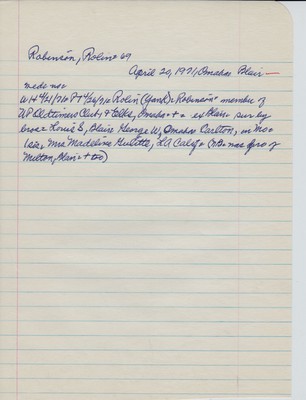 Robinson, Rolin 69
April 20, 1971, Omaha Blair —
made no.
WH 4/21/71 P7 4/26/71 Rolin (Hank) Robinson member of
UP Oldtimers Club, & Elks, Omaha ex Blair sur by
bros Louis E, Blair George W, Omaha Carlton, in Mo
sis, Mrs Madeline Gulette, LA Calif was bro of
Milton, Blair too)